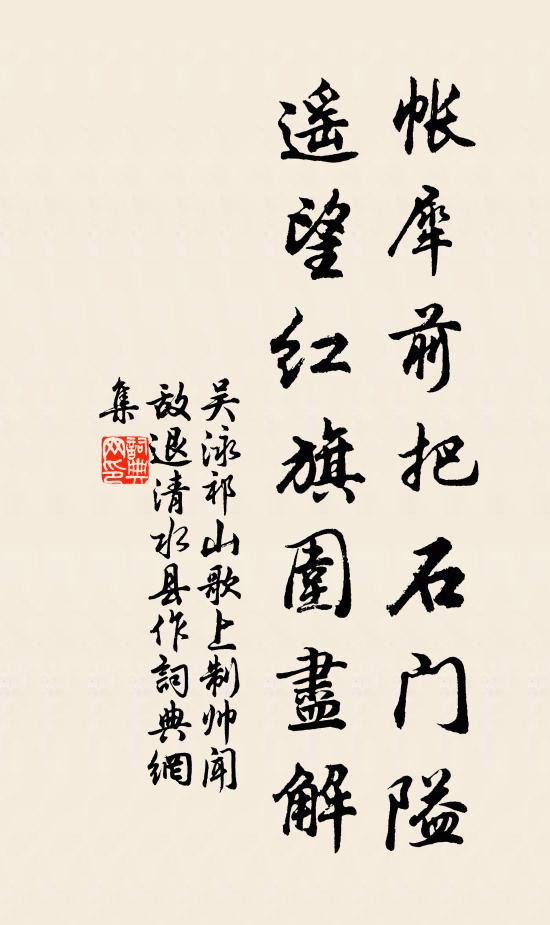 帐犀前把石门隘
遥望红旗围盡解
吴泳祁山歌上制帅闻
敌退清水县作詞典網
集
詞典
网印